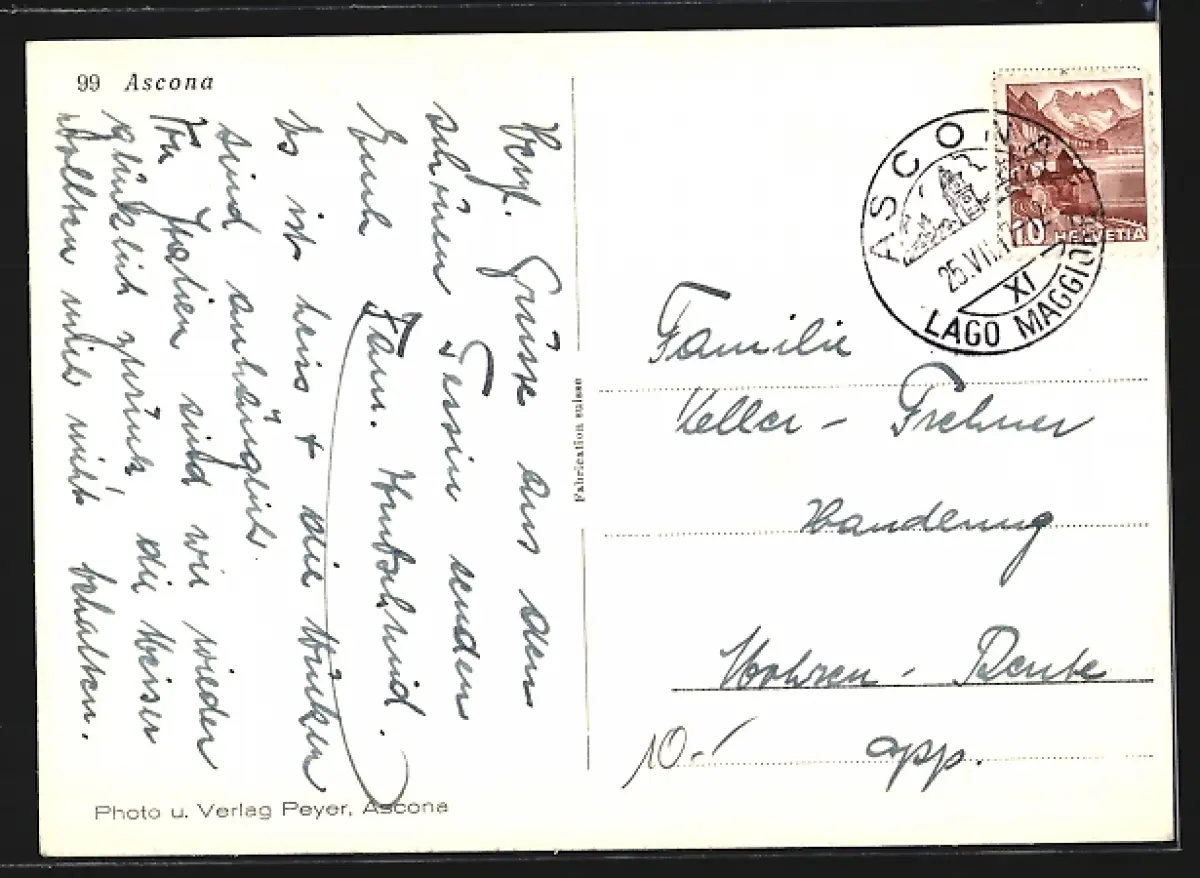 99 Ascona
Herzl. Grüsse aus dem
schönen Tessin senden
Euch
Fam.
Es ist heiss + die Mücken
sind anhänglich.
In Italien sind wir wieder
glücklich zurück, die Heisser
wollten mich nicht behalten.
Photo u. Verlag Peyer, Ascona
Fabrication suisse
ASCONA
25.VII.
XI
LAGO MAGGIORE
10 HELVETIA
Familie
Keller - Frehner
Wanderung
- Reute
app.
10.-